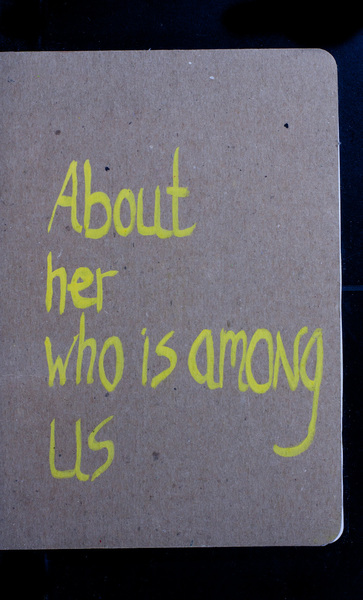 About
her
who is among
us